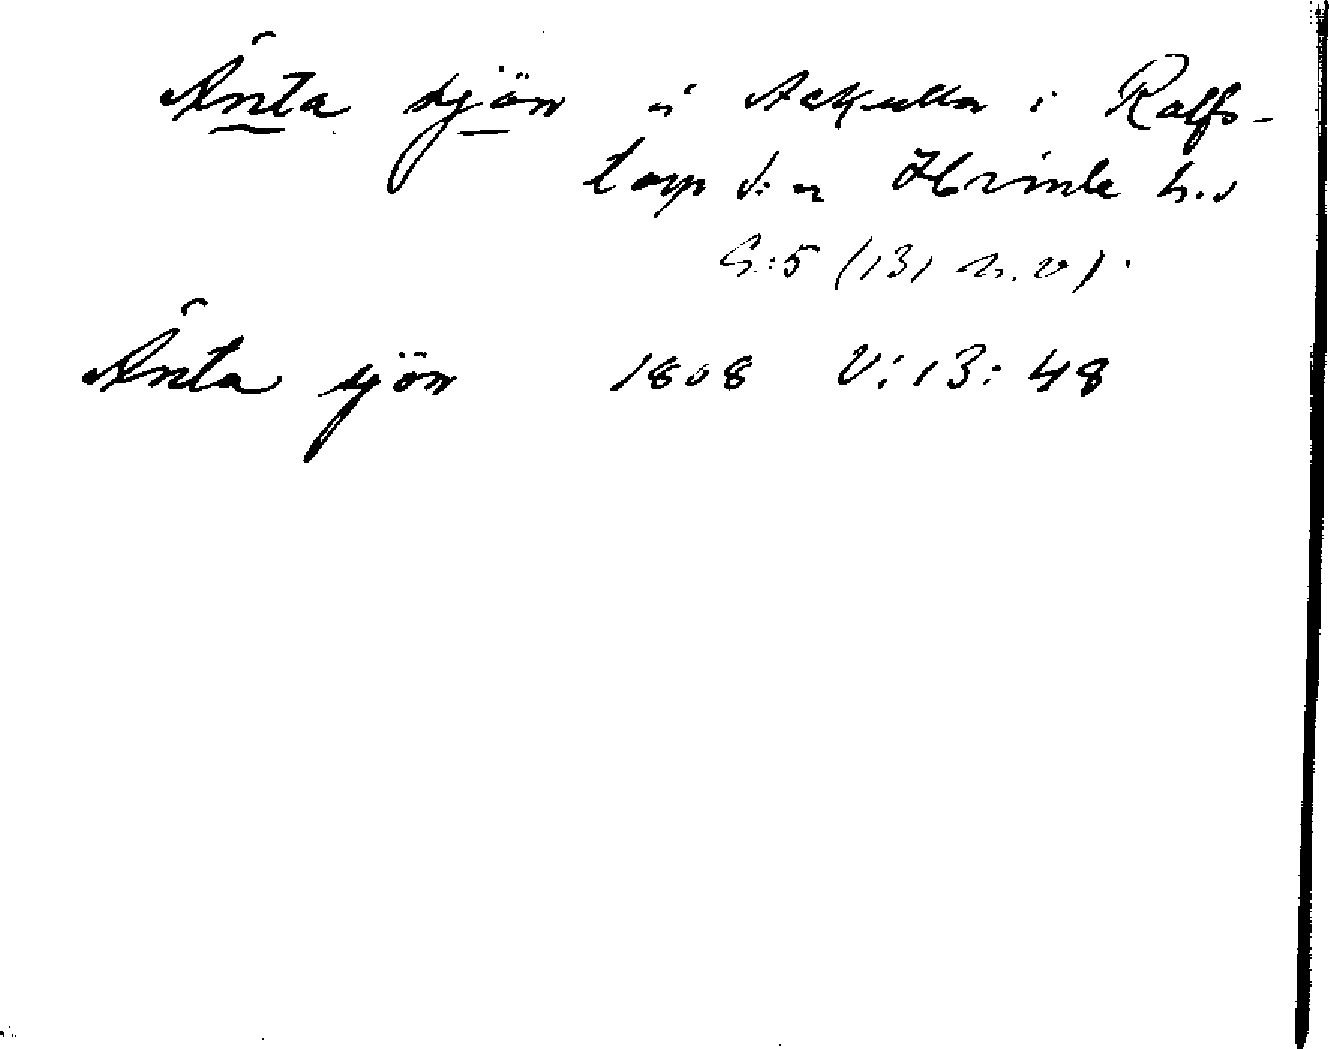 Änta sjön i Ackulla i Rolfs-
torp s:n Himle h.d
G:5 (131 n.v).
Änta sjön 1808 V:13:48